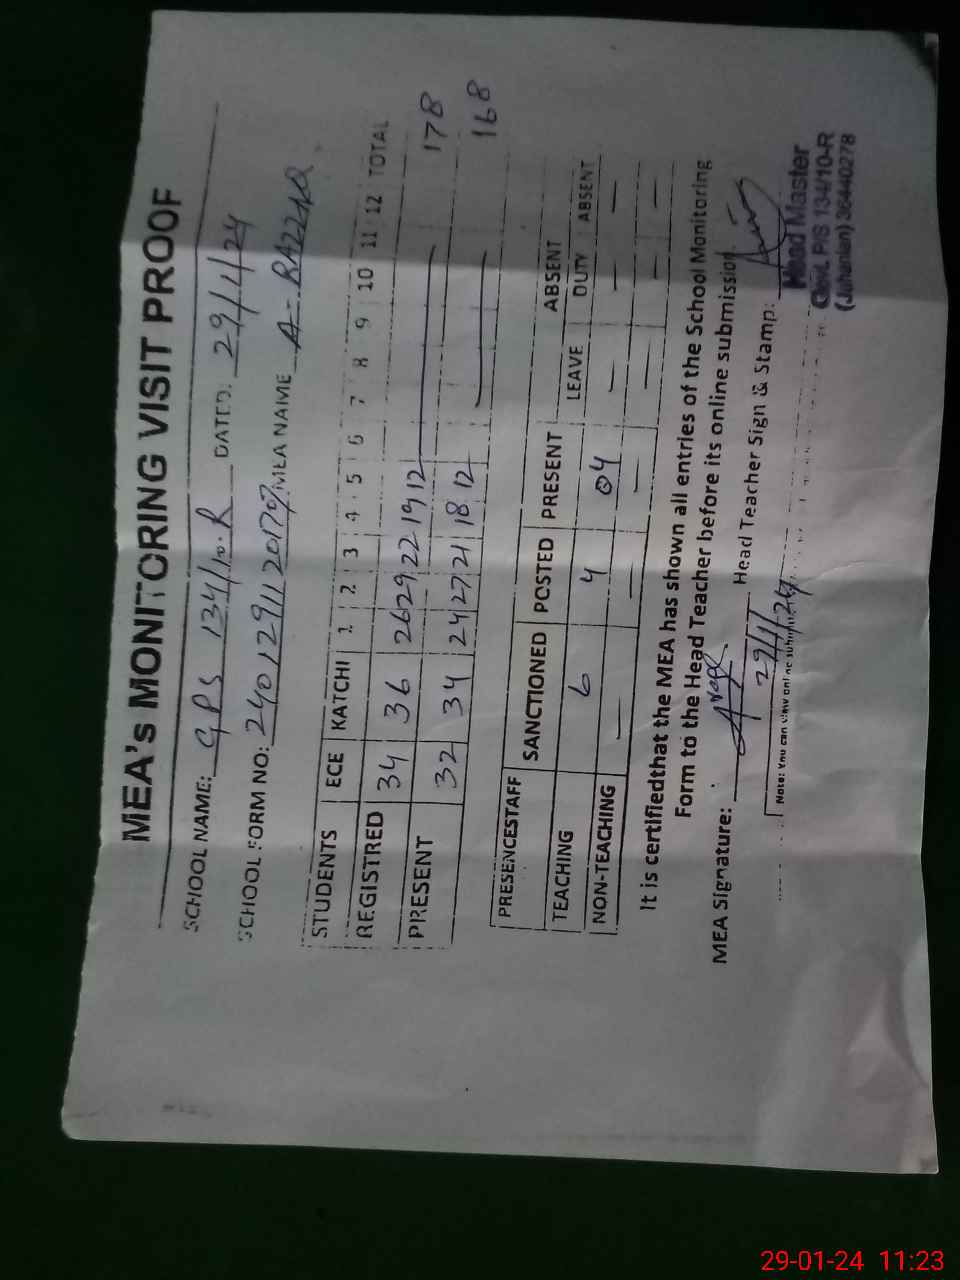 MEA's MONITORING VISIT PROOF
SCHOOL NAME: GPS 134/10.R DATED: 29/1/24
SCHOOL FORM NO: MEA NAME A- RAZZAQ
STUDENTS ECE KATCHI 1 2 3 4 5 6 7 8 9 10 11 12 TOTAL
REGISTRED 34 36 26 29 22 19 12 178
PRESENT 32 34 24 27 21 18 12 168
PRESENCESTAFF SANCTIONED POSTED PRESENT LEAVE DUTY ABSENT
ABSENT
TEACHING 6 4 04 — — —
NON-TEACHING — — — — — —
It is certifiedthat the MEA has shown all entries of the School Monitoring
Form to the Head Teacher before its online submission.
MEA Signature: Head Teacher Sign & Stamp:
29/1/24
Head Master
Govt. P/S 134/10-R
(Jahanian) 36440278
Note: You can view online
29-01-24 11:23